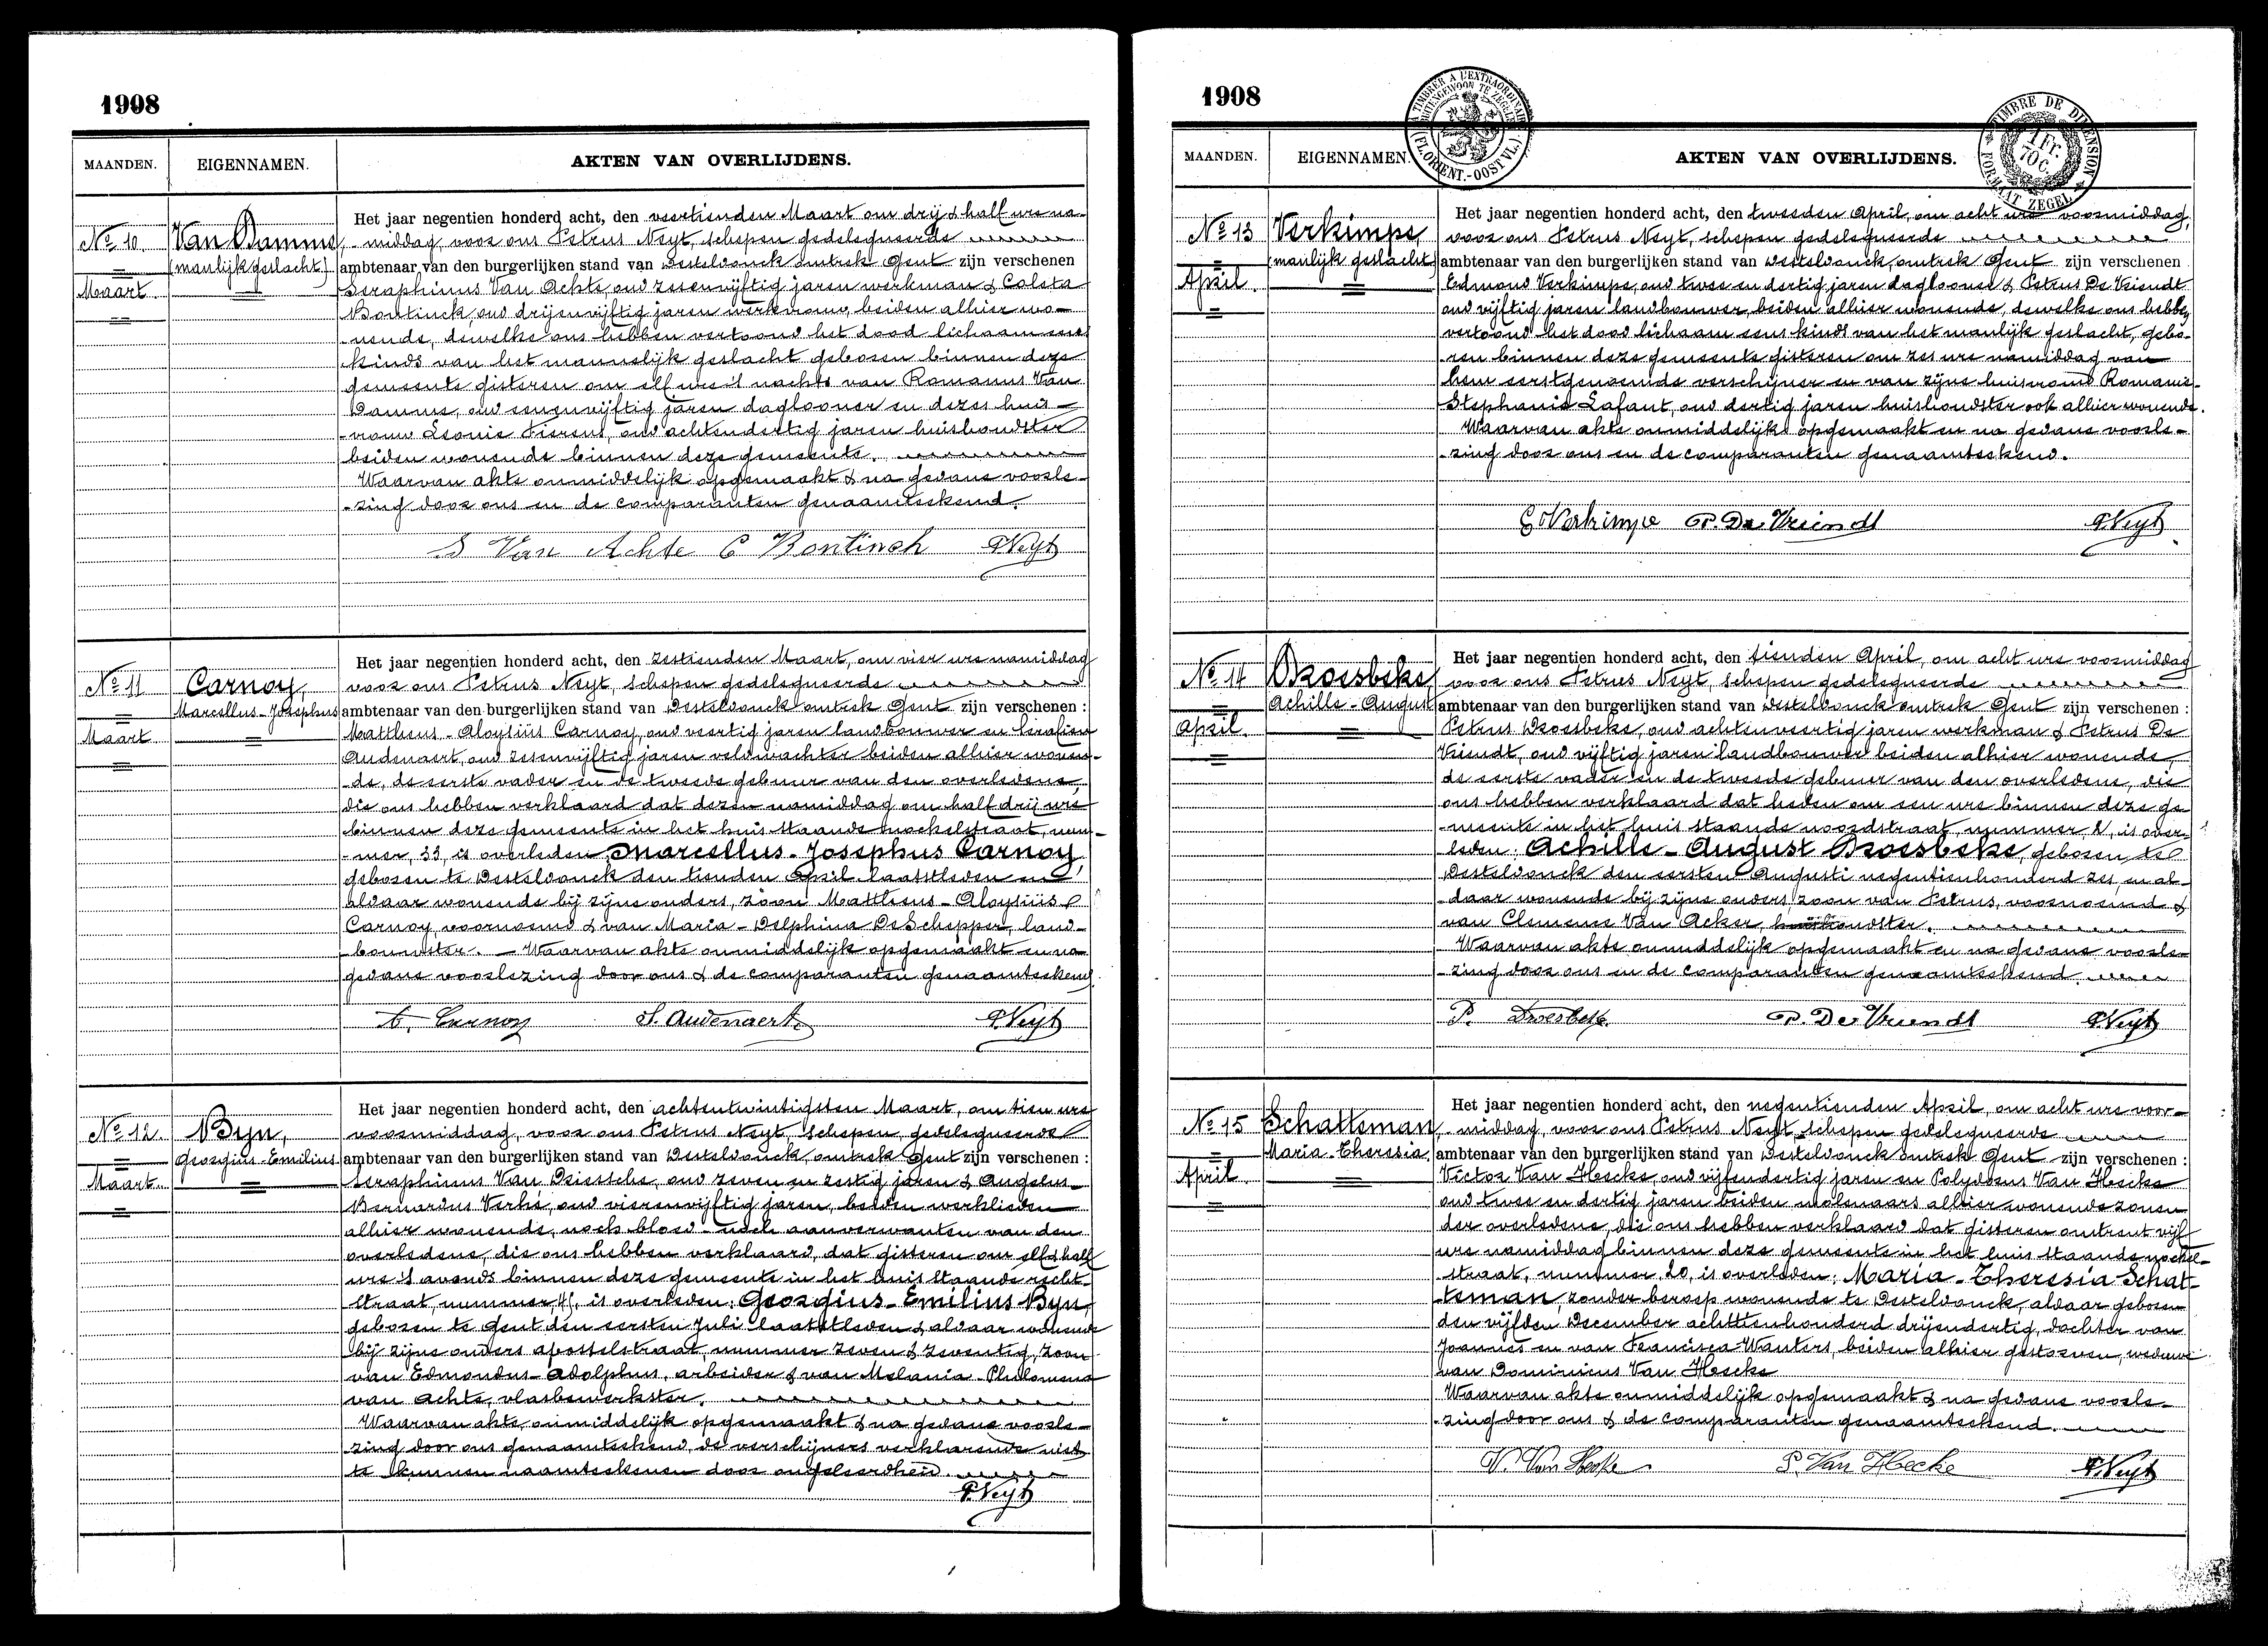 1908
MAANDEN.
EIGENNAMEN.
AKTEN VAN OVERLIJDENS.
No 10
Maart
Van Damme,
(manlijk geslacht)
Het jaar negentien honderd acht, den veertienden Maart om drij & half ure na-
-middag voor ons Petrus Neyt, schepen gedelegueerde
ambtenaar van den burgerlijken stand van Desteldonck omtrek Gent zijn verschenen
Seraphinus Van Achte oud zesenvijftig jaren werkman & Colita
Bontinck, oud drijenvijftig jaren werkvrouw, beiden alhier wo-
-nende, dewelke ons hebben vertoond het dood lichaam eens
kinds van het mannelijk geslacht geboren binnen deze
gemeente gisteren om elf ure 's nachts van Romanus Van
Damme, oud eenenvijftig jaren daglooner en dezes huis-
-vrouw Leonie Fierens, oud achtendertig jaren huishoudster
beiden wonende binnen deze gemeente.
Waarvan akte onmiddelijk opgemaakt & na gedane voorle-
-zing door ons en de comparanten genaamteekend.
S Van Achte C Bontinck PNeyt
No 11
Maart
Carnoy,
Marcellus-Josephus
Het jaar negentien honderd acht, den zestienden Maart, om vier ure namiddag
voor ons Petrus Neyt, schepen gedelegueerde
ambtenaar van den burgerlijken stand van Desteldonck omtrek Gent zijn verschenen :
Mattheus-Aloysiüs Carnoy, oud veertig jaren landbouwer en Serafien
Audenaert, oud zesenvijftig jaren veldwachter beiden alhier wonen-
-de, de eerste vader en de tweede gebuur van den overledene,
die ons hebben verklaard dat dezen namiddag om half drij ure
binnen deze gemeente in het huis staande mochelstraat, num-
-mer, 33, is overleden Marcellus-Josephus Carnoy,
geboren te Desteldonck den tienden April laatstleden en
aldaar wonende bij zijne ouders, zoon Mattheus-Aloysiüs
Carnoy voornoemd & van Maria-Delphina De Schepper, land-
-bouwster. - Waarvan akte onmiddelijk opgemaakt en na
gedane voorlezing door ons & de comparanten genaamteekend.
A. Carnoy S. Audenaert. PNeyt
No 12.
Maart
Byn,
Georgius-Emilius
Het jaar negentien honderd acht, den achtentwintigsten Maart, om tien ure
voormiddag, voor ons Petrus Neyt, Schepen gedelegueerde
ambtenaar van den burgerlijken stand van Desteldonck omtrek Gent zijn verschenen :
Seraphinus Van Driessche, oud zeven en zestig jaren & Angelus-
Bernardus Verhé, oud vierenvijftig jaren, beiden werklieden
alhier wonende, noch bloed- noch aanverwanten van den
overledene, die ons hebben verklaard, dat gisteren om elf & half
ure 's avonds binnen deze gemeente in het huis staande recht-
straat, nummer, is overleden: Georgius-Emilius Byn,
geboren te Gent den eersten Juli laatstleden & aldaar wonende
bij zijne ouders apostelstraat, nummer zeven & zeventig, zoon
van Edmondus-Adolphus, arbeider & van Melania-Philomena
van Achte, vlasbewerkster.
Waarvan akte onmiddelijk opgemaakt & na gedane voorle-
zing door ons genaamteekend, de verschijners verklarende niet
te kunnen naamteekenen door ongeleerdheid.
PNeyt
1908
TIMBRE A L'EXTRAORDINAIRE
BUITENGEWOON TE ZEGELEN
(FL. ORIENT.-OOST VL.)
TIMBRE DE DIMENSION
1 Fr.
70 C.
FORMAAT ZEGEL
MAANDEN.
EIGENNAMEN.
AKTEN VAN OVERLIJDENS.
No 13
April
Verkimpe,
(manlijk geslacht)
Het jaar negentien honderd acht, den tweeden April, om acht ure voormiddag,
voor ons Petrus Neyt, schepen gedelegueerde
ambtenaar van den burgerlijken stand van Desteldonck, omtrek Gent zijn verschenen
Edmond Verkimpe, oud twee en dertig jaren daglooner & Petrus De Vriendt
oud vijftig jaren landbouwer, beiden alhier wonende, dewelke ons hebben
vertoond het dood lichaam eens kinds van het manlijk geslacht, gebo-
-ren binnen deze gemeente gisteren om zes ure namiddag van
hem eerstgenoemde verschijner en van zijne huisvrouw Romanie-
Stephanie Lafaut, oud dertig jaren huishoudster ook alhier wonende.
Waarvan akte onmiddelijk opgemaakt en na gedane voorle-
-zing door ons en de comparanten genaamteekend.
E Verkimpe P. De Vriendt PNeyt
No 14
April.
Droesbeke
Achille-August
Het jaar negentien honderd acht, den tienden April, om acht ure voormiddag
voor ons Petrus Neyt, schepen gedelegueerde
ambtenaar van den burgerlijken stand van Desteldonck omtrek Gent zijn verschenen :
Petrus Droesbeke, oud achtenveertig jaren werkman & Petrus De
Vriendt, oud vijftig jaren landbouwer beiden alhier wonende,
de eerste vader en de tweede gebuur van den overledene, die
ons hebben verklaard dat heden om een ure binnen deze ge-
-meente in het huis staande noordstraat, nummer, is over-
leden: Achille-August Droesbeke, geboren te
Desteldonck den eersten Augusti negentienhonderd zes, en al-
-daar wonende bij zijne ouders, zoon van Petrus, voornoemd &
van Clemence Van Acker, huishoudster.
Waarvan akte onmiddelijk opgemaakt en na gedane voorle-
-zing door ons en de comparanten genaamteekend.
P. Droesbeke P. De Vriendt PNeyt
No 15
April
Schatteman,
Maria-Theresia
Het jaar negentien honderd acht, den negentienden April, om acht ure voor-
-middag, voor ons Petrus Neyt, schepen gedelegueerde
ambtenaar van den burgerlijken stand van Desteldonck omtrek Gent zijn verschenen :
Victor Van Hecke, oud vijfendertig jaren en Polydorus Van Hecke
oud twee en dertig jaren beiden molenaars alhier wonende zonen
der overledene, die ons hebben verklaard dat gisteren omtrent vijf
ure namiddag binnen deze gemeente in het huis staande mochel-
-straat, nummer, 20, is overleden: Maria-Theresia Schat-
teman, zonder beroep wonende te Desteldonck, aldaar geboren
den vijfden December achttienhonderd drijendertig, dochter van
Joannes en van Francisca Wauters, beiden alhier gestorven, weduwe
van Dominicus Van Hecke
Waarvan akte onmiddelijk opgemaakt & na gedane voorle-
-zing door ons & de comparanten genaamteekend.
V. Van Hecke P. Van Hecke PNeyt